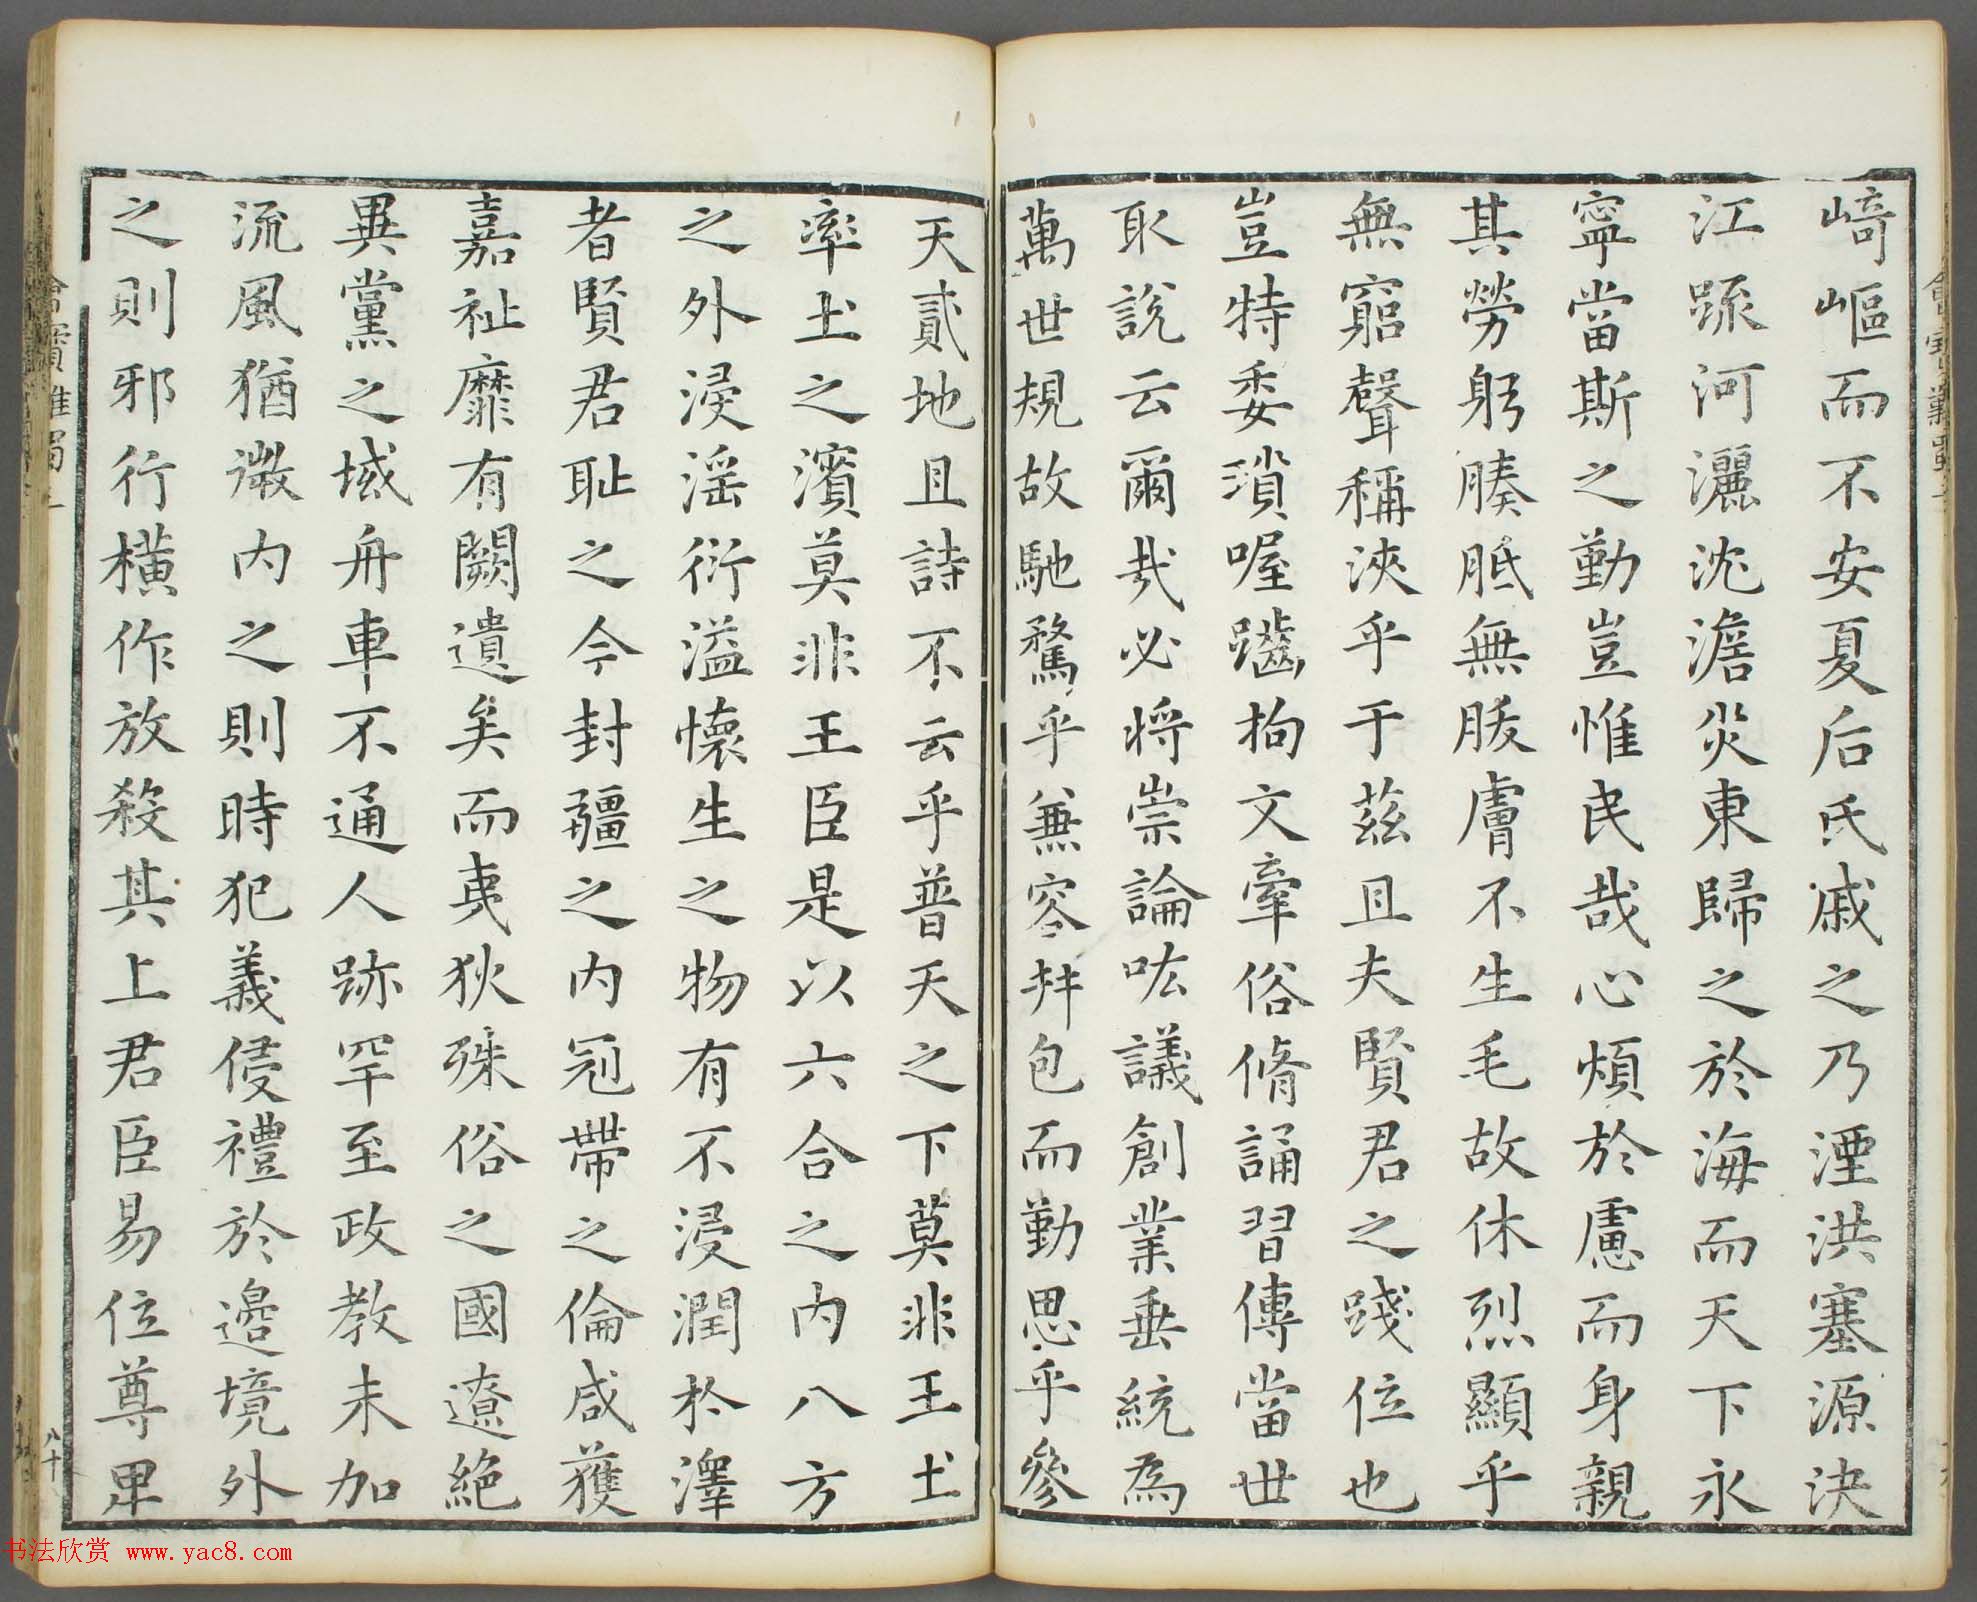 崎嶇而不安夏后氏戚之乃湮洪塞源決
江疏河灑沈澹災東歸之於海而天下永
寧當斯之勤豈惟民哉心煩於慮而身親
其勞躬腠胝無胈膚不生毛故休烈顯乎
無窮聲稱浹乎于茲且夫賢君之踐位也
豈特委瑣喔躖拘文牽俗脩誦習傳當世
取說云爾哉必將崇論吰議創業垂統為
萬世規故馳騖乎兼容幷包而勤思乎參
天貳地且詩不云乎普天之下莫非王土
率土之濱莫非王臣是以六合之內八方
之外浸淫衍溢懷生之物有不浸潤於澤
者賢君恥之今封疆之內冠帶之倫咸獲
嘉祉靡有闕遺矣而夷狄殊俗之國遼絕
異黨之域舟車不通人跡罕至政教未加
流風猶微內之則時犯義侵禮於邊境外
之則邪行橫作放殺其上君臣易位尊卑
八十
书法欣赏 www.yac8.com